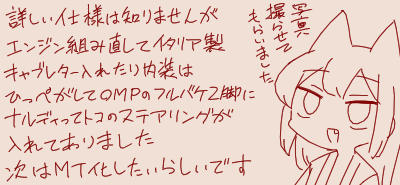 詳しい仕様は知りませんが
エンジン組み直してイタリア製
キャブレター入れたり内装は
ひっぺがしてOMPのフルバケ2脚に
ナルディってトコのステアリングが
入れてありました
次はMT化したいらしいです
写真
撮らせて
もらいました